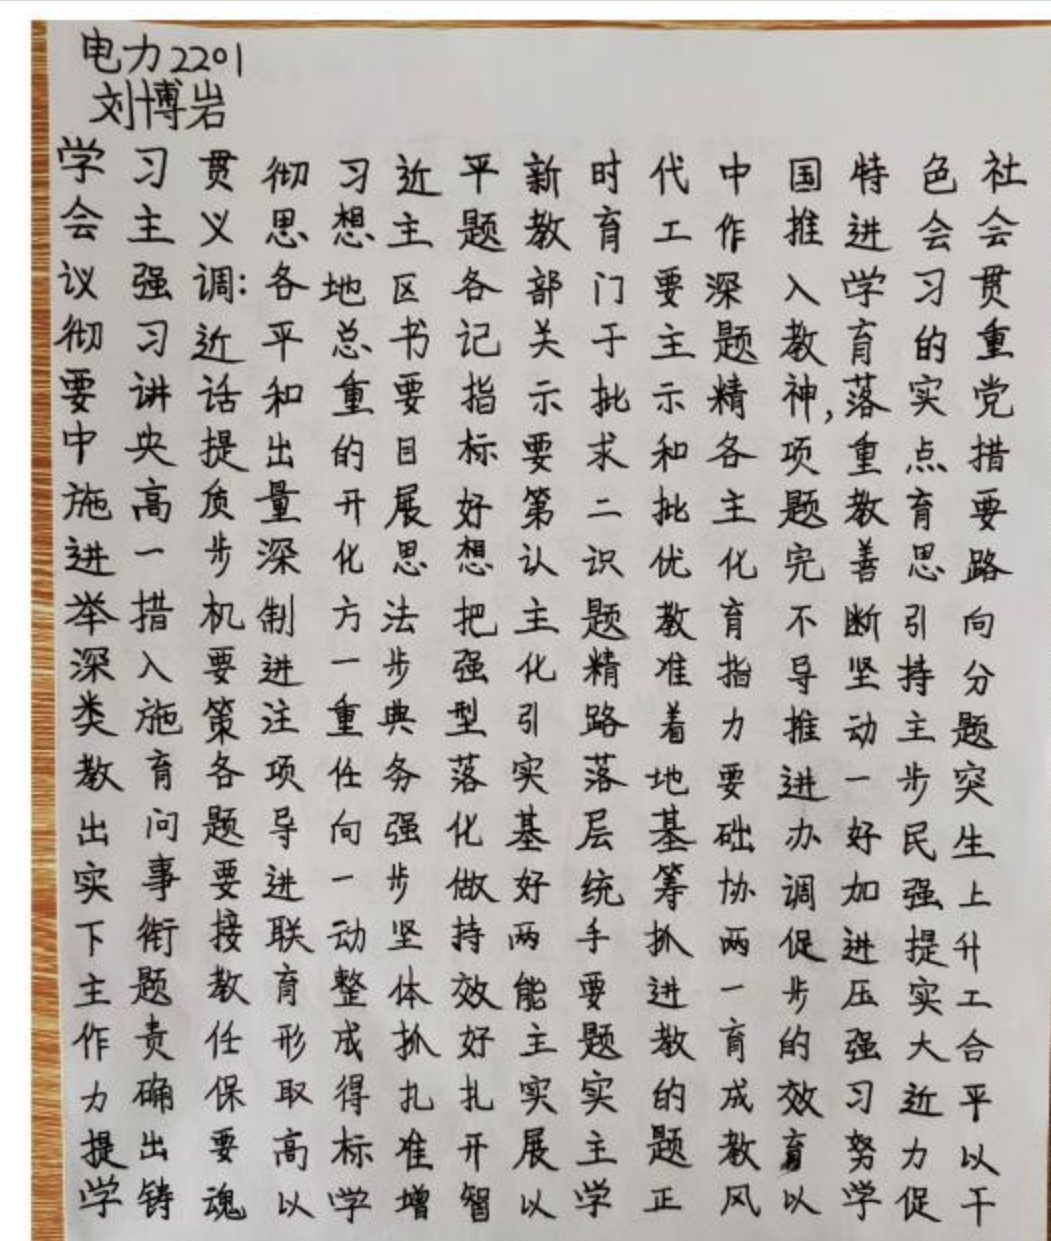 电力2201
刘博岩
学习贯彻习近平新时代中国特色社
会主义思想主题教育工作推进会会
议强调:各地区各部门要深入学习贯
彻习近平总书记关于主题教育的重
要讲话和重要指示批示精神,落实党
中央提出的目标要求和各项重点措
施高质量开展好第二批主题教育要
进一步深化思想认识优化完善思路
举措机制方法把主题教育不断引向
深入要进一步强化精准指导坚持分
类施策注重典型引路着力推动主题
教育各项任务落实落地要进一步突
出问题导向强化基层基础办好民生
实事要进一步做好统筹协调加强上
下衔接联动坚持两手抓两促进提升
主题教育整体效能要进一步压实工
作责任形成抓好主题教育的强大合
力确保取得扎扎实实的成效习近平
提出要高标准开展主题教育努力以
学铸魂以学增智以学正风以学促干